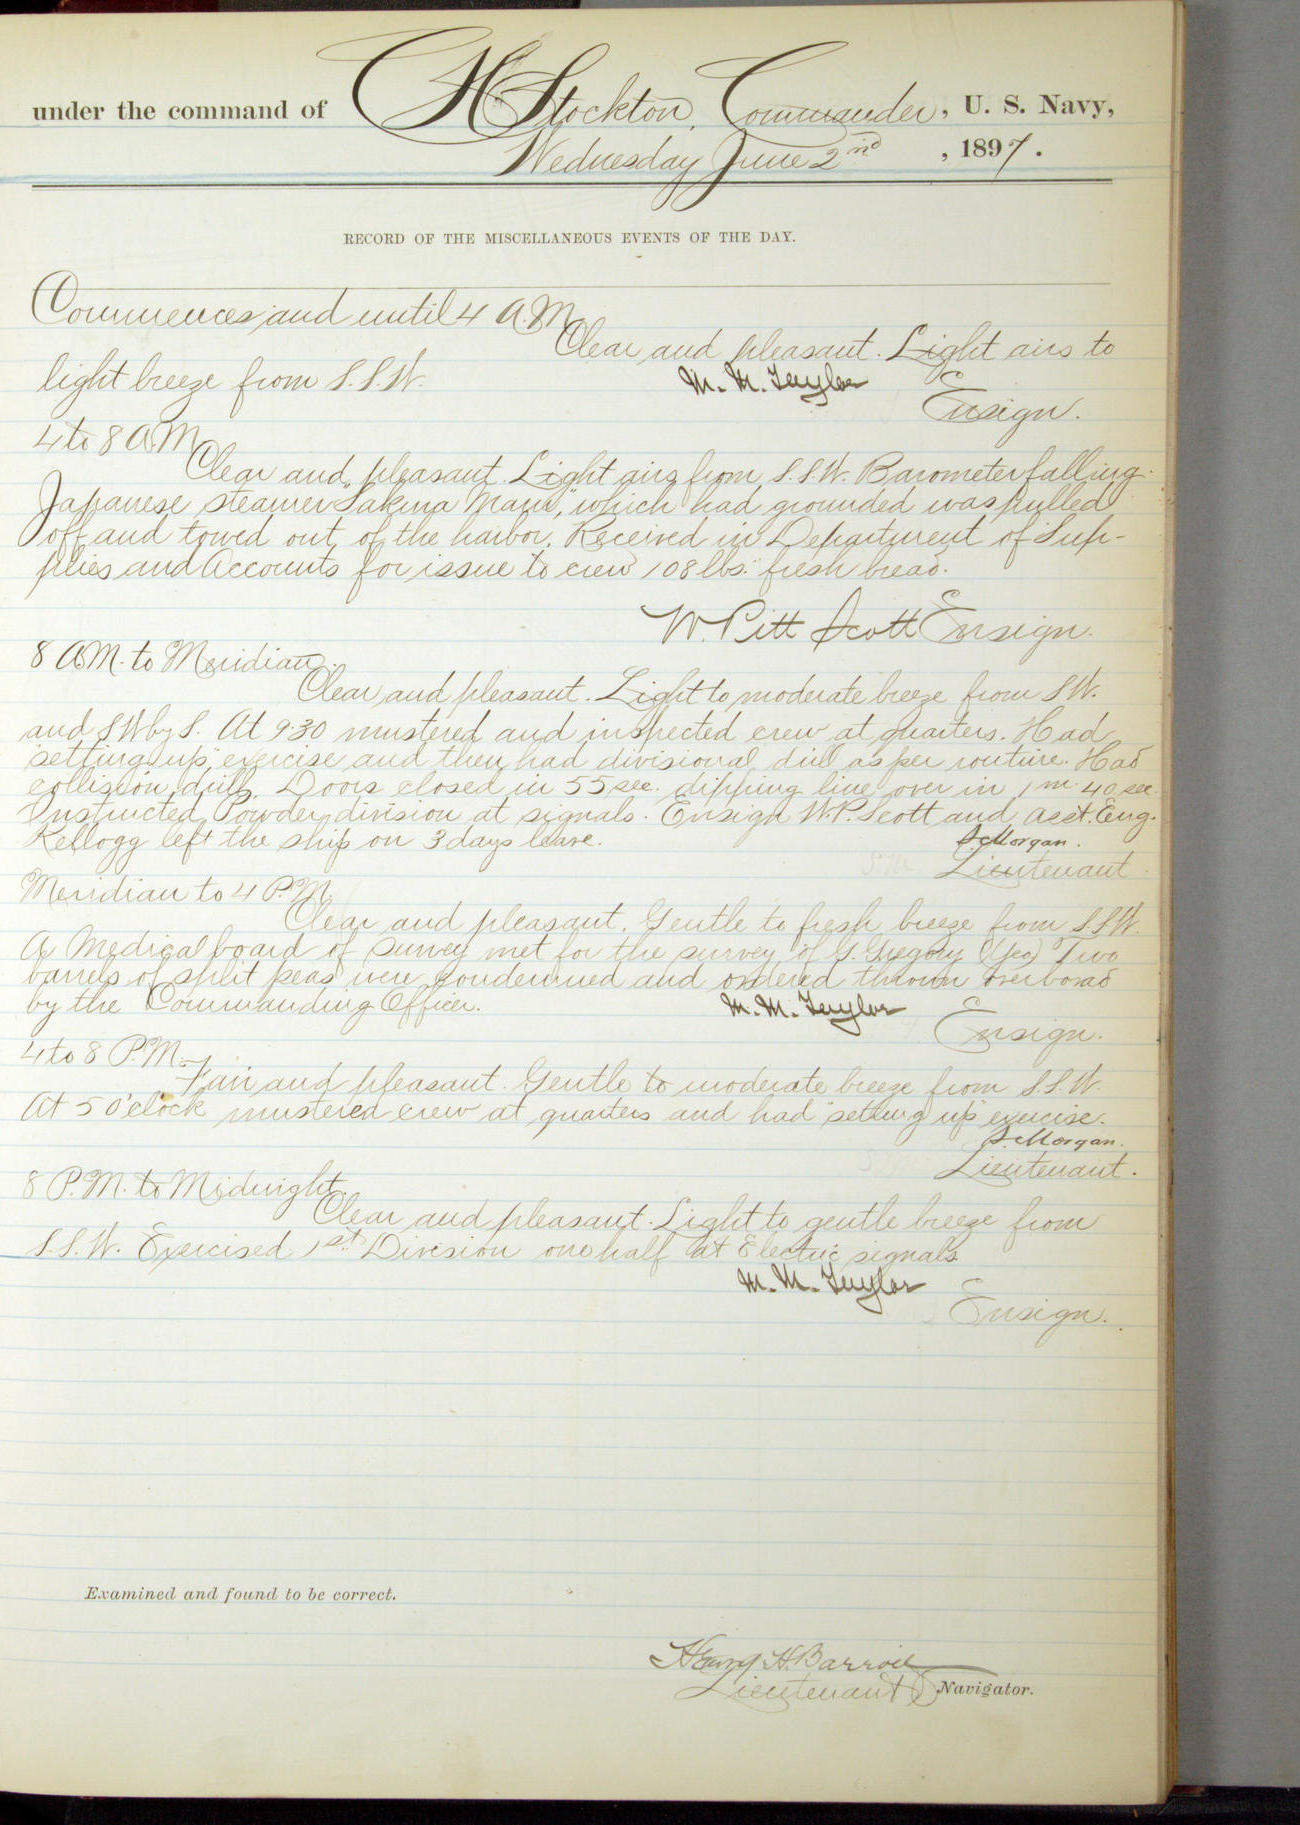 under the command of C H Stockton, Commander, U. S. Navy,
Wednesday June 2nd, 1897.
RECORD OF THE MISCELLANEOUS EVENTS OF THE DAY.
Commences and until 4 A.M.
Clear and pleasant. Light airs to
light breeze from S.S.W.
M. M. Taylor
Ensign.
4 to 8 A.M.
Clear and pleasant. Light airs from S.S.W. Barometer falling.
Japanese steamer "Sakura Maru", which had grounded was pulled
off and towed out of the harbor. Received in Department of Sup-
plies and Accounts for issue to crew 108 lbs. fresh bread.
W. Pitt Scott Ensign.
8 A.M. to Meridian.
Clear and pleasant. Light to moderate breeze from S.W.
and S.W. by S. At 9:30 mustered and inspected crew at quarters. Had
"setting up" exercise and then had divisional drill as per routine. Had
collision drill. Doors closed in 55 sec. dipping line over in 1 m. 40 sec.
Instructed Powder division at signals. Ensign W.P. Scott and Asst. Eng.
Kellogg left the ship on 3 days leave.
S. Morgan.
Lieutenant
Meridian to 4 P.M.
Clear and pleasant. Gentle to fresh breeze from S.S.W.
A Medical board of survey met for the survey of G. Gregory (Yeo) Two
barrels of split peas were condemned and ordered thrown overboard
by the Commanding Officer.
M. M. Taylor
Ensign.
4 to 8 P.M.
Fair and pleasant. Gentle to moderate breeze from S.S.W.
At 5 O'clock mustered crew at quarters and had "setting up" exercise.
S. Morgan.
Lieutenant.
8 P.M. to Midnight.
Clear and pleasant. Light to gentle breeze from
S.S.W. Exercised 1st Division one half at Electric signals
M. M. Taylor
Ensign.
Examined and found to be correct.
Henry H. Barroll
Lieutenant Navigator.